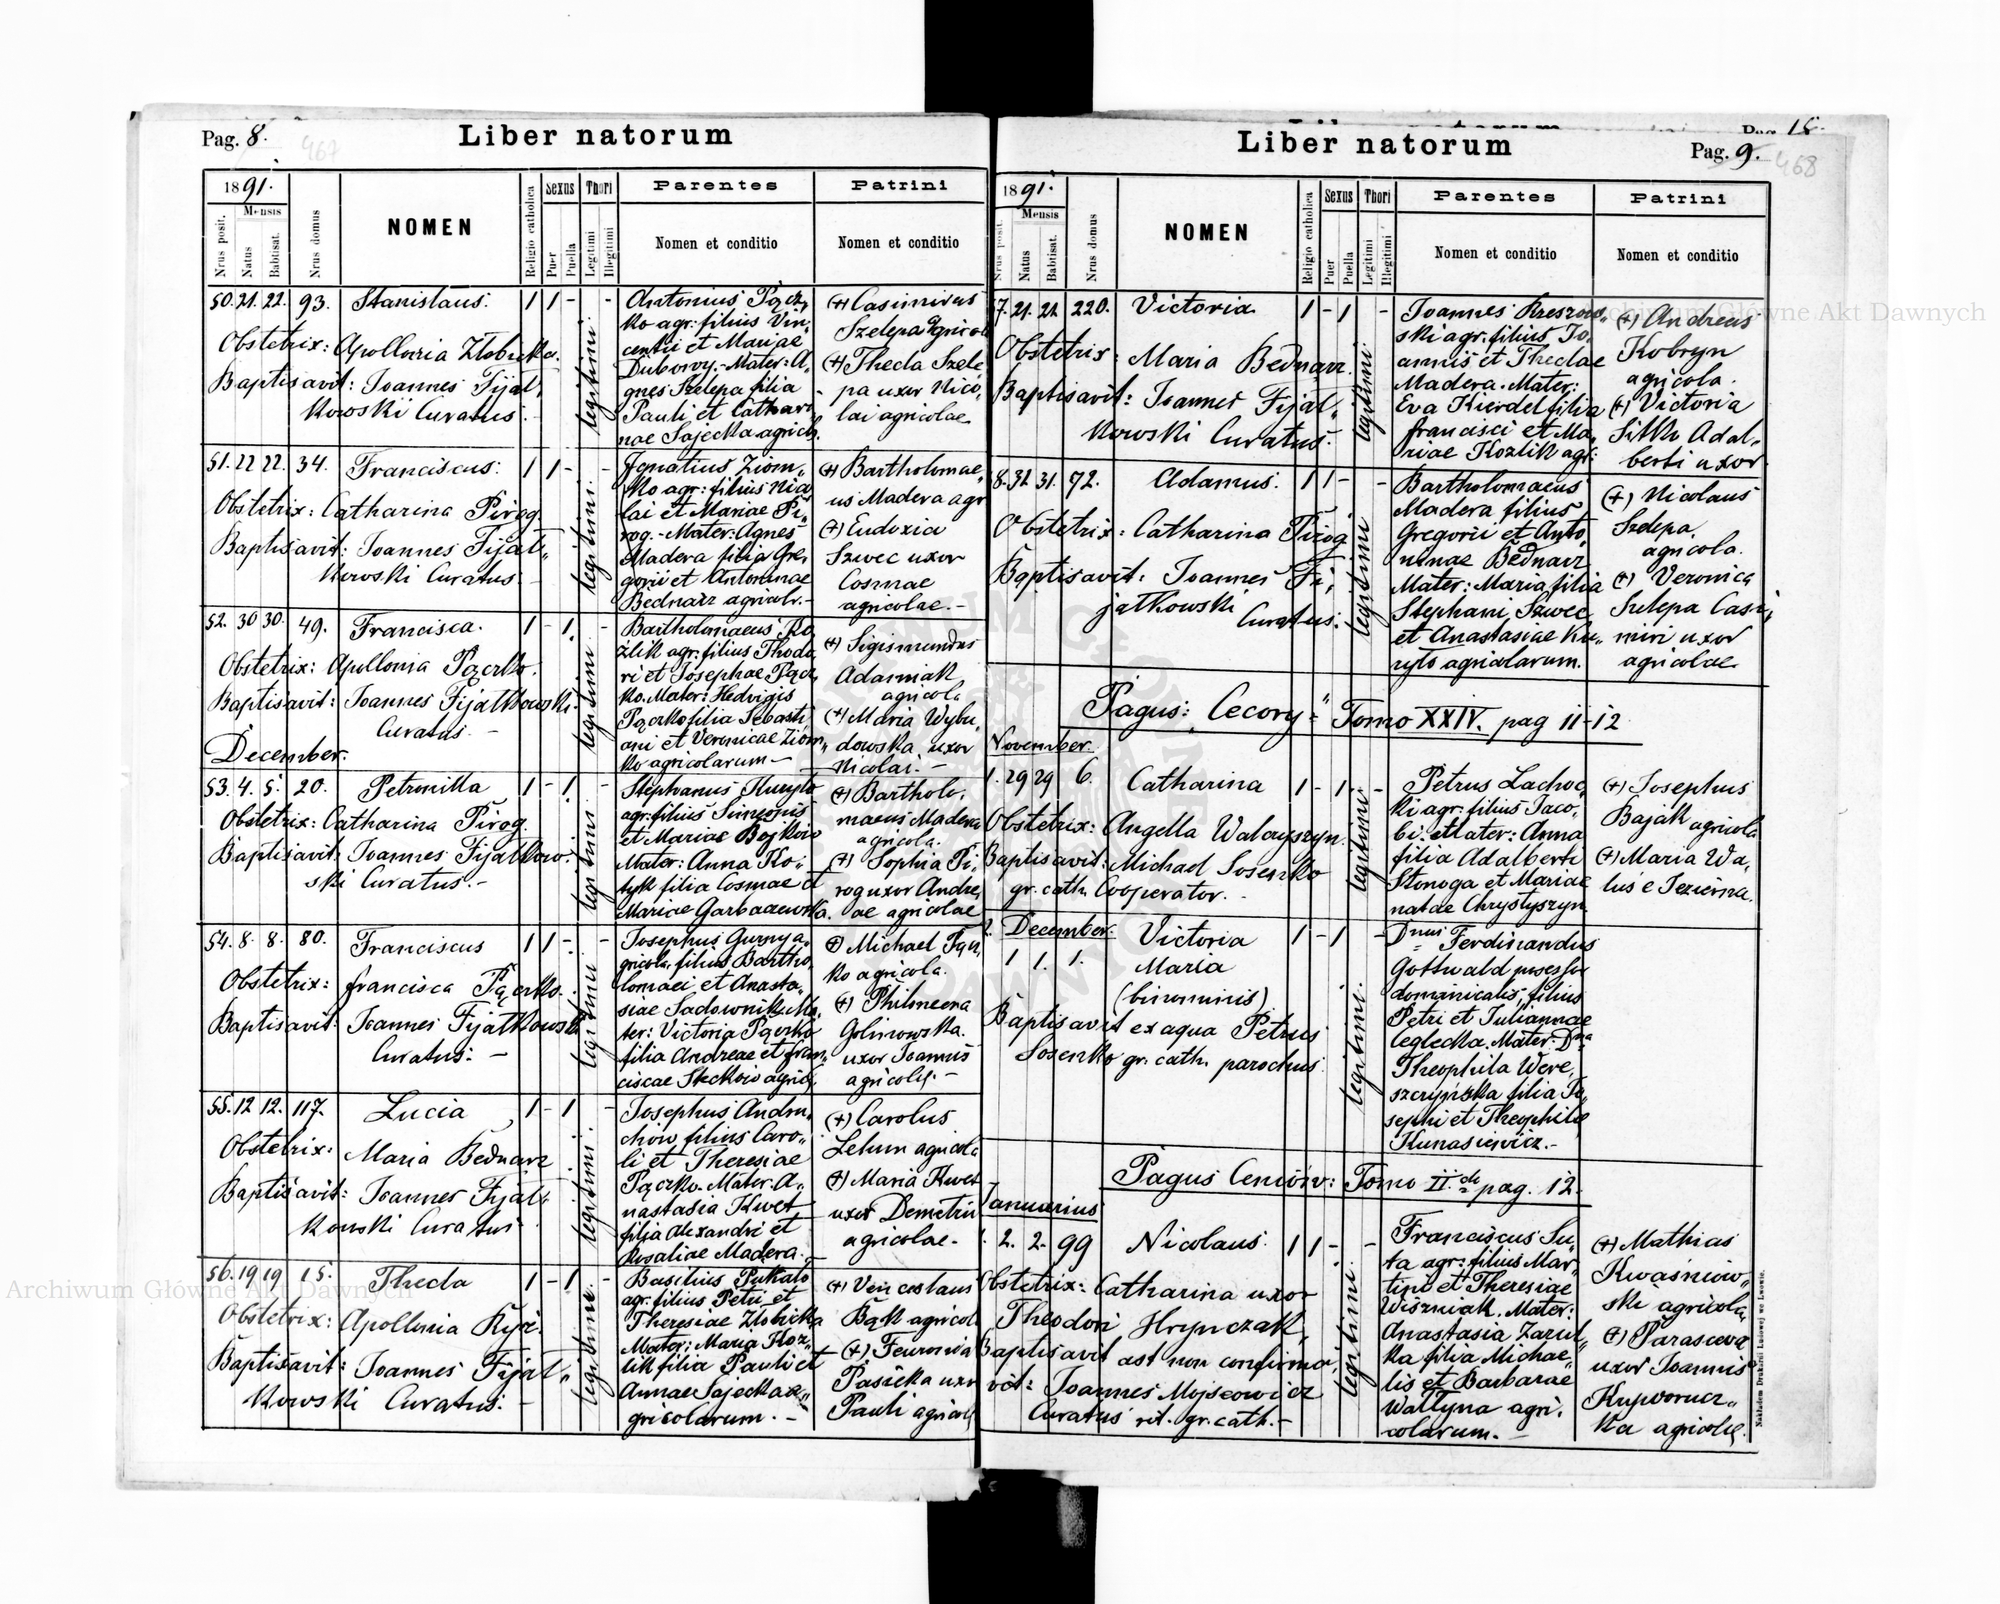 Pag. 8.
467
Liber natorum
1891.
Mensis
Nrus posit.
Natus
Babtisat.
Nrus domus
NOMEN
Religio catholica
Sexus
Puer
Puella
Thori
Legitimi
Illegitimi
Parentes
Nomen et conditio
Patrini
Nomen et conditio
50. 21. 22. 93. Stanislaus. 1 1 - -
Obstetrix: Apollonia Złobicka.
Baptisavit: Joannes Fijał„
kowski Curatus. -
legitimi
Antonius Pącz„
ko agr: filius Vin„
centii et Mariae
Dubowy.- Mater: A„
gnes Szelepa filia
Pauli et Cathari„
nae Sajecka agricol.
(+) Casimirus
Szelepa agricola
(+) Thecla Szele„
pa uxor Nico„
lai agricolae
51. 22 22. 34. Franciscus. 1 1 - -
Obstetrix: Catharina Pirog.
Baptisavit: Joannes Fijał„
kowski Curatus. -
legitimi.
Ignatius Ziom„
ko agr: filius Nico„
lai et Mariae Pi„
rog.- Mater: Agnes
Madera filia Gre„
gorii et Antoninae
Bednarz agricolr.-
(+) Bartholomae„
us Madera agr
(+) Eudoxia
Szwec uxor
Cosmae
agricolae.-
52. 30 30. 49. Francisca. 1 - 1. -
Obstetrix: Apollonia Pączko.
Baptisavit: Joannes Fijałkowski.
Curatus. -
legitimi
Bartholomaeus Ko„
zlik agr: filius Thodo„
ri et Josephae Pącz„
ko. Mater: Hedvigis
Pączko filia Sebasti„
ani et Veronicae Ziom„
ko agricolarum -
(+) Sigismundus
Adamiak
agricola
(+) Maria Wybu„
dowska uxor
Nicolai. -
December.
53. 4. 5. 20. Petronilla 1 - 1. -
Obstetrix: Catharina Pirog.
Baptisavit: Joannes Fijałkow„
ski Curatus.-
legitimi
Stephanus Kuryło
agr: filius Simeonis
et Mariae Bojków
Mater: Anna Ko„
tyk filia Cosmae et
Mariae Garbaczewska.
(+) Bartholo„
maeus Madera
agricola.
(+) Sophia Pi„
rog uxor Andre„
ae agricolae
54. 8. 8. 80. Franciscus 1 1 - -
Obstetrix: Francisca Pączko.
Baptisavit: Joannes Fijałkowski
Curatus. -
legitimi
Josephus Gurny a„
gricola, filius Bartho„
lomaei et Anasta„
siae Sadownik. Ma„
ter: Victoria Pączko
filia Andreae et Fran„
ciscae Steckow agricol.
(+) Michael Pącz„
ko agricola.
(+) Philomena
Golinowska.
uxor Joannis
agricolę. -
55. 12 12. 117. Lucia 1 - 1 -
Obstetrix: Maria Bednarz
Baptisavit: Joannes Fijał„
kowski Curatus
legitimi.
Josephus Andru„
chów filius Caro„
li et Theresiae
Pączko. Mater. A„
nastasia Kwet
filia Alexandri et
Rosaliae Madera. -
(+) Carolus
Letun agricola
(+) Maria Kwet
uxor Demetrii
agricolae.-
56. 19 19 15. Thecla 1 - 1 -
Obstetrix: Apollonia
Baptisavit: Joannes Fijał„
kowski Curatus. -
legitimi
Basilius Pukało
agr: filius Petri et
Theresiae Złobicka
Mater: Maria Koz„
lik filia Pauli et
Annae Sajecka a„
gricolarum. -
(+) Venceslaus
Bąk agricola
(+) Feuronia
Pasieka uxor
Pauli agricolę
Pag. 15.
Liber natorum
Pag. 9.
468
1891.
Mensis
Nrus posit.
Natus
Babtisat.
Nrus domus
NOMEN
Religio catholica
Sexus
Puer
Puella
Thori
Legitimi
Illegitimi
Parentes
Nomen et conditio
Patrini
Nomen et conditio
7. 21. 21. 220. Victoria. 1 - 1 -
Obstetrix: Maria Bednarz.
Baptisavit: Joannes Fijał„
kowski Curatus.
legitimi
Joannes Kreszow„
ski agr: filius Jo„
annis et Theclae
Madera. Mater:
Eva Kierdel filia
Francisci et Ma„
riae Kozlik agr:
(+) Andreas
Kobryn
agricola.
(+) Victoria
Sitko Adal„
berti uxor
8. 31. 31. 72. Adamus. 1 1 - -
Obstetrix: Catharina Pirog
Baptisavit: Joannes Fi„
jałkowski
Curatus.
legitimi
Bartholomaeus
Madera filius
Gregorii et Anto„
ninae Bednarz
Mater: Maria filia
Stephani Szwec
et Anastasiae Ku„
ryło agricolarum.
(+) Nicolaus
Szelepa,
agricola.
(+) Veronica
Szelepa Casi„
miri uxor
agricolae
Pagus: Cecory" - Tomo XXIV. pag 11-12
November.
1. 29 29 6. Catharina 1 - 1 - -
Obstetrix: Angella Walczyszyn.
Baptisavit: Michael Sosenko
gr. cath. Cooperator. -
legitimi
Petrus Lachoc„
ki agr: filius Jaco„
bi. Mater: Anna
filia Adalberti
Stonoga et Mariae
natae Chrystyszyn.
(+) Josephus
Bajak agricola
(+) Maria Wa„
lus e Jezierna.
2. December.
1 1. 1. Victoria 1 - 1 -
Maria
(binominis)
Baptisavit ex aqua Petrus
Sosenko gr. cath. parochus
legitimi.
Dnus Ferdinandus
Gottwald posessor
domanicalis, filius
Petri et Juliannae
Ceglecka. Mater: Dna
Theophila Were„
szczyńska filia Jo„
sephi et Theophile
Kunasiewicz.-
Pagus Ceniów: Tomo II.do pag. 12.
Januarius
1. 2. 2. 99 Nicolaus. 1 1 - -
Obstetrix: Catharina uxor
Theodori Hrynczak,
Baptisavit ast non confirma„
vit: Joannes Mojseowicz
Curatus rit. gr. cath.-
legitimi
Franciscus Su„
ta agr: filius Mar„
tini et Theresiae
Wiszniak. Mater:
Anastasia Zarul„
ka filia Michae„
lis et Barbarae
Wałtyna agri„
colarum.-
(+) Mathias
Kwaśniow„
ski agricola
(+) Parasceva
uxor Joannis
Kupworucz„
ka agricolę.
Nakładem Drukarni Ludowej we Lwowie.
Archiwum Główne Akt Dawnych
Archiwum Główne Akt Dawnych